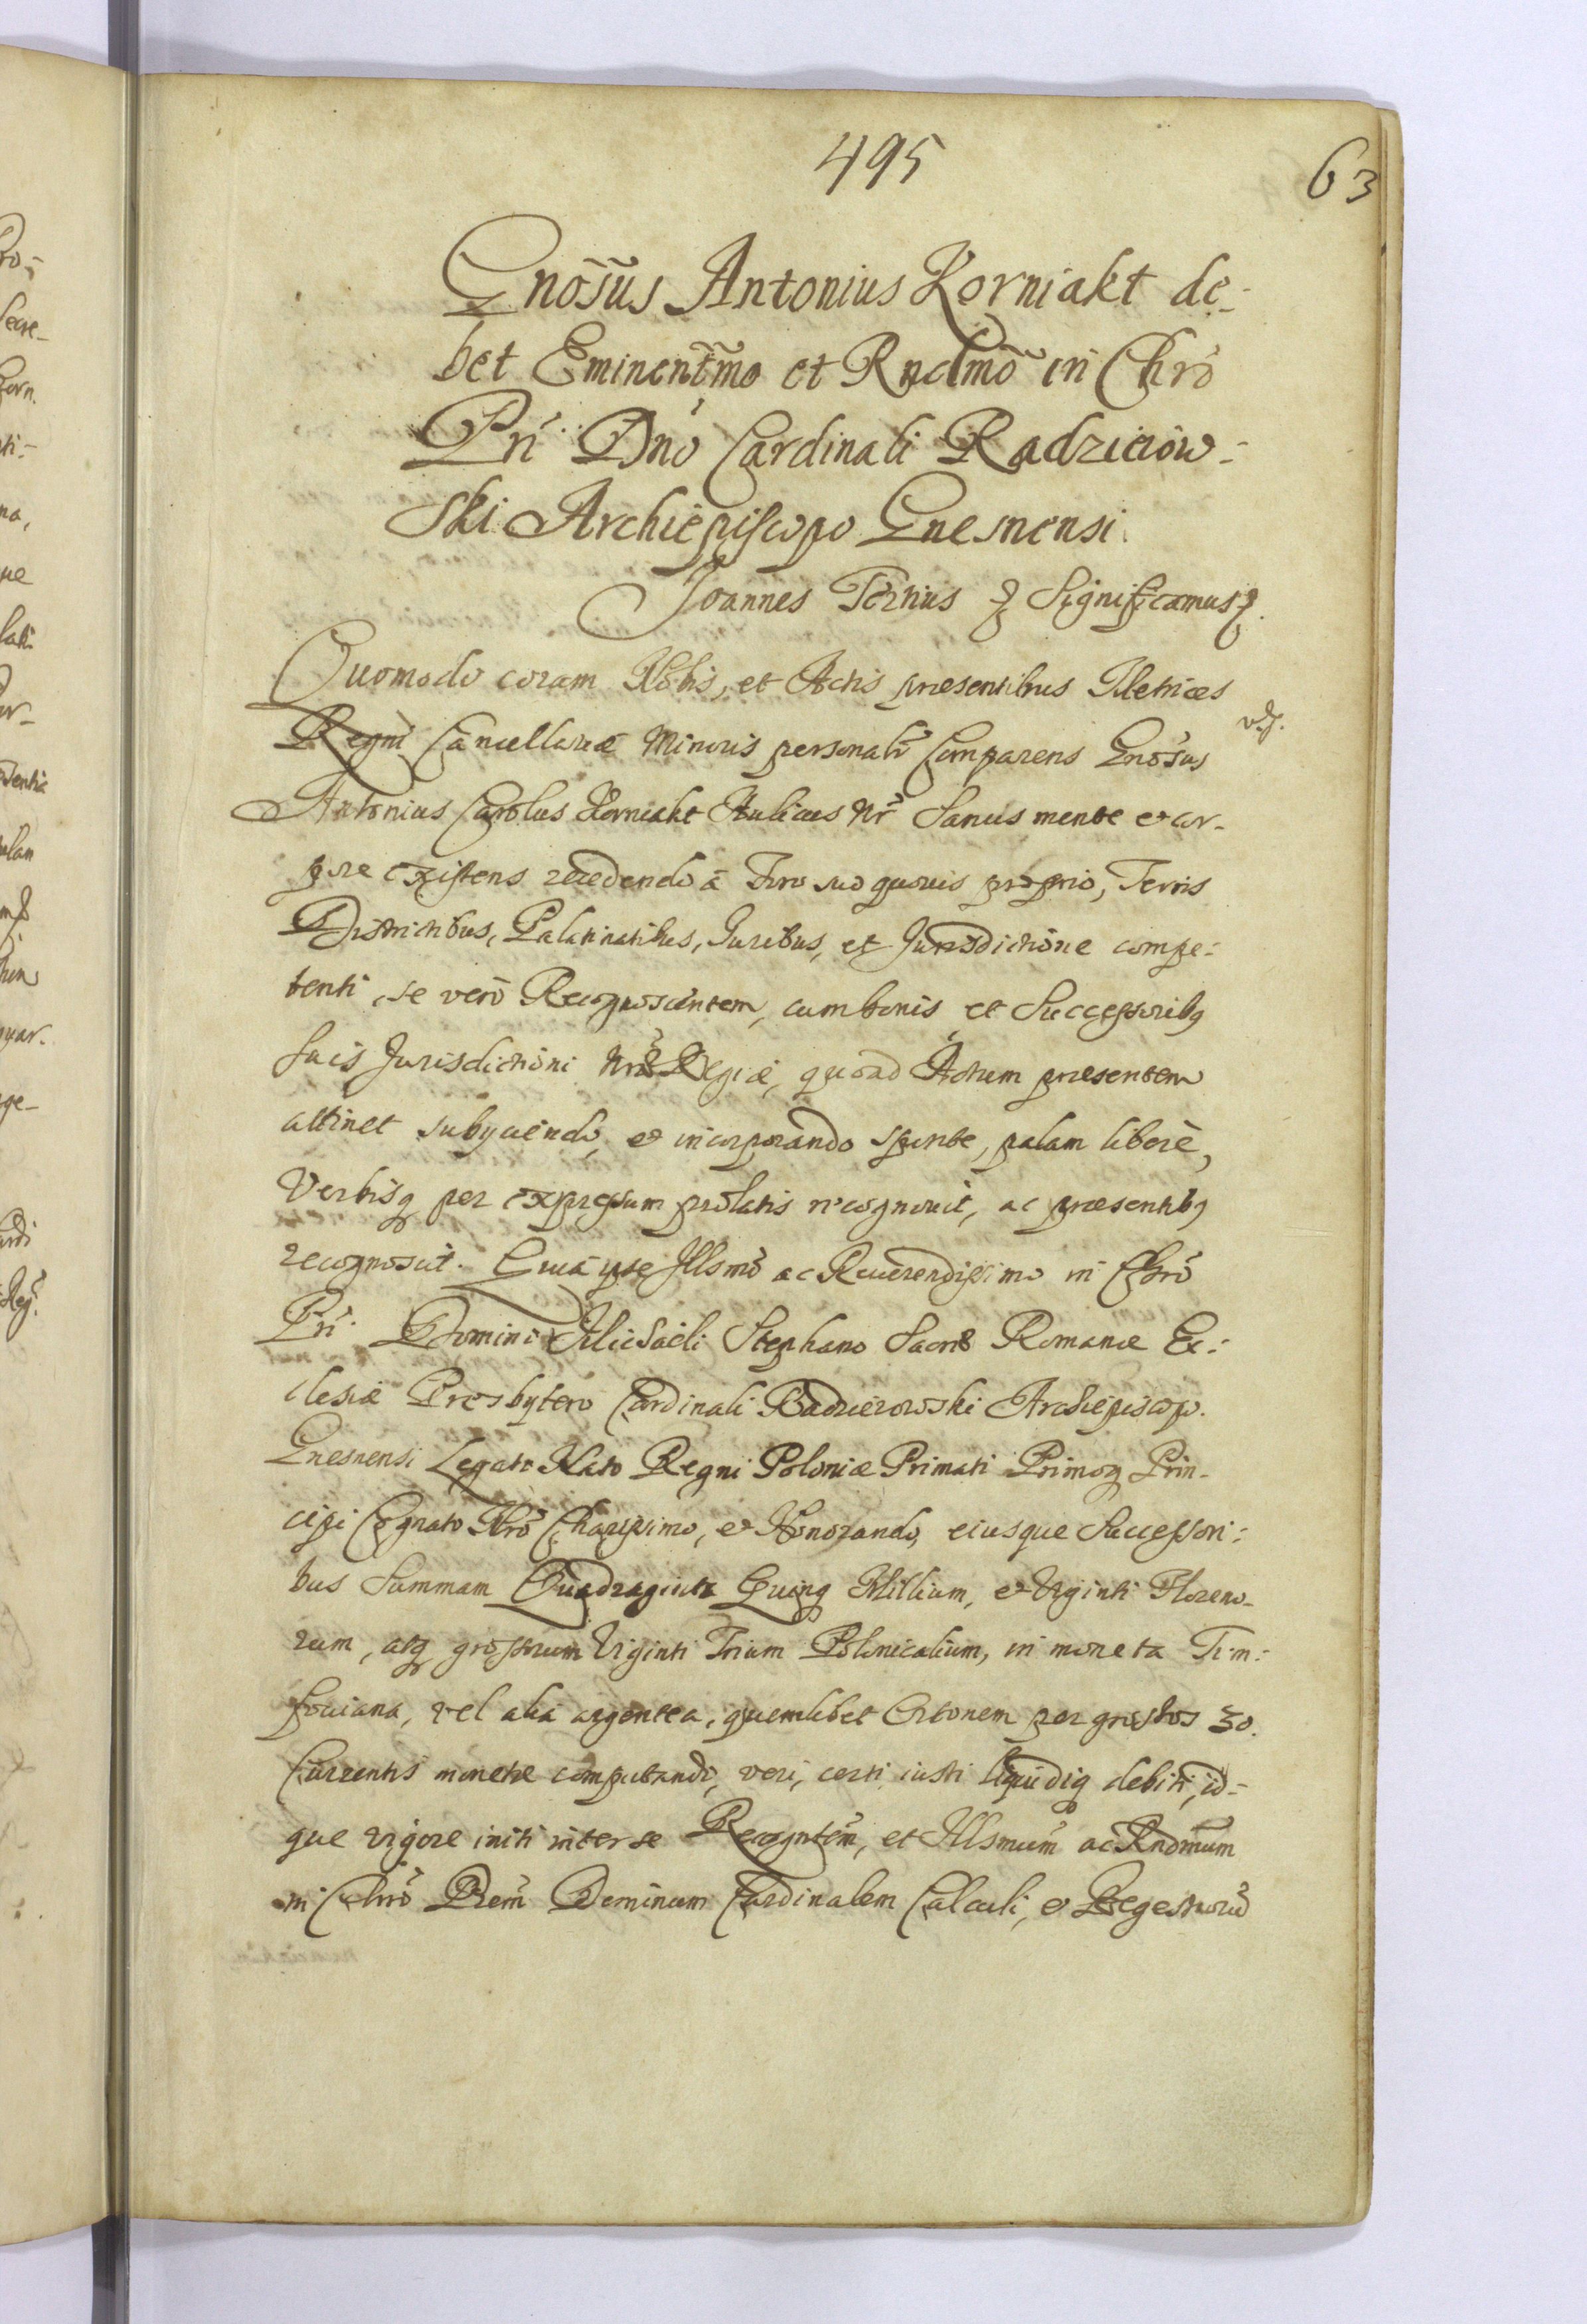 495
63
Gnosus Antonius Korniakt de-
bet Eminentmo et Rndmo in Chro
Pri Dno Cardinali Radzieiow-
ski Archiepiscopo Gnesnensi.
Joannes Tertius & Significamus &.
Quomodo coram Nobis, et Actis praesentibus Metrices
Regni Cancellariae Minoris personalr Comparens Gnosus
Antonius Carolus Korniakt Aulicus Nr Sanus mente et cor-
pore existens recedendo a Foro suo quovis proprio, Terris
Districtibus, Palatinatibus, Juribus, et Jurisdictione compe-
tenti, se vero Recognoscentem, cum bonis et Successoribq
suis Jurisdictioni Nrae Regiae, quoad Actum praesentem
attinet subijciendo, et incorporando sponte, palam libere,
Verbisq per expressum prolatis recognovit, ac praesentibq
recognoscit. Quia ipse Illsmo ac Reverendissimo in Chro
Pri Domini Michaeli Stephano Sacrae Romanae Ec-
clesiae Presbytero Cardinali Radzieiowski Archiepiscop.
Gnesnensi Legato Nato Regni Poloniae Primati Primoq Prin-
cipi Cognato Nro Charissimo, et Honorando, eiusque Successori-
bus Summam Quadraginta Quinq Millium, et Viginti Floreno-
rum, atq grossorum Viginti Trium Polonicalium, in moneta Tim-
foviana, vel alia argentea, quemlibet Ortonem per grossos 30.
Currentis monetae computando, veri, certi iusti liquidiq debiti, id-
que vigore initi inter se Recogntem, et Illsmum ac Rndmum
in Chro Prem Dominum Cardinalem Calculi, et Regestroru